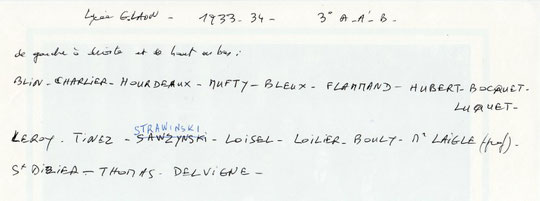 Lycée GHAON - 1933-34- 3° A-A'-B-
de gauche à droite et de haut en bas:
BLIN-CHARLIER-HOURDEAUX-MUFTY-BLEUX-FLAMMAND-HUBERT-BOCQUET-
LUCQUET-
STRAWINSKI
LEROY-TINEZ-SAWZYNSKI-LOISEL-LOILIER-BOULY-Mr LAIGLE (prof)-
St DIZIER-THOMAS-DELVIGNE-